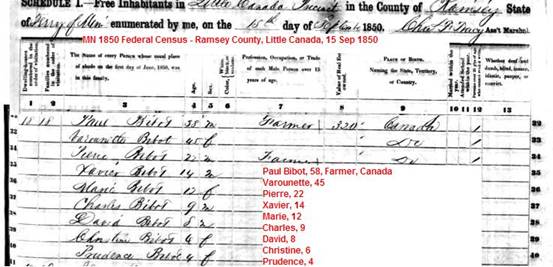 SCHEDULE I.—Free Inhabitants in Little Canada Precinct in the County of Ramsey State
of Terry of Min enumerated by me, on the 15th day of Sept 1850. Ass't Marshal.
MN 1850 Federal Census - Ramsey County, Little Canada, 15 Sep 1850
The Name of every Person whose usual place of abode on the first day of June, 1850, was in this family.
Age.
Sex.
Profession, Occupation, or Trade of each Male Person over 15 years of age.
Value of Real Estate owned.
PLACE OF BIRTH.
Naming the State, Territory, or Country.
1 2 3 4 5 6 7 8 9 10 11 12 13
18 18 Paul Bibot 58 m Farmer 320 Canada 1
Varounette Bibot 45 f Do 1
33 Pierre Bibot 22 m Farmer Do 1
Xavier Bibot 14 m
35 Marie Bibot 12 f
Charles Bibot 9 m
David Bibot 8 m
Christine Bibot 6 f
Prudence Bibot 4 f
Paul Bibot, 58, Farmer, Canada
Varounette, 45
Pierre, 22
Xavier, 14
Marie, 12
Charles, 9
David, 8
Christine, 6
Prudence, 4